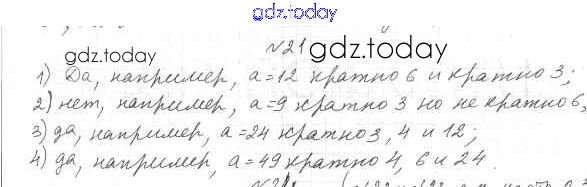 gdz.today
№21
gdz.today gdz.today
1) Да, например, а=12 кратно 6 и кратно 3;
2) нет, например, а=9 кратно 3 но не кратно 6,
3) да, например, а=24 кратно 3, 4 и 12;
4) да, например, а=49 кратно 4, 6 и 24.